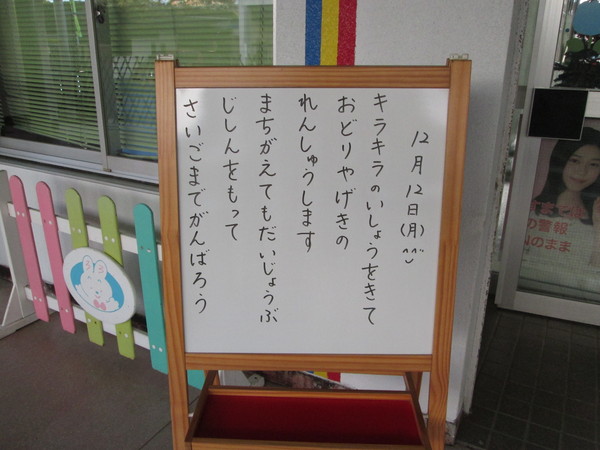 12月12日(月)^^
キラキラのいしょうをきて
おどりやげきの
れんしゅうします
まちがえてもだいじょうぶ
じしんをもって
さいごまでがんばろう
の警報
のまま